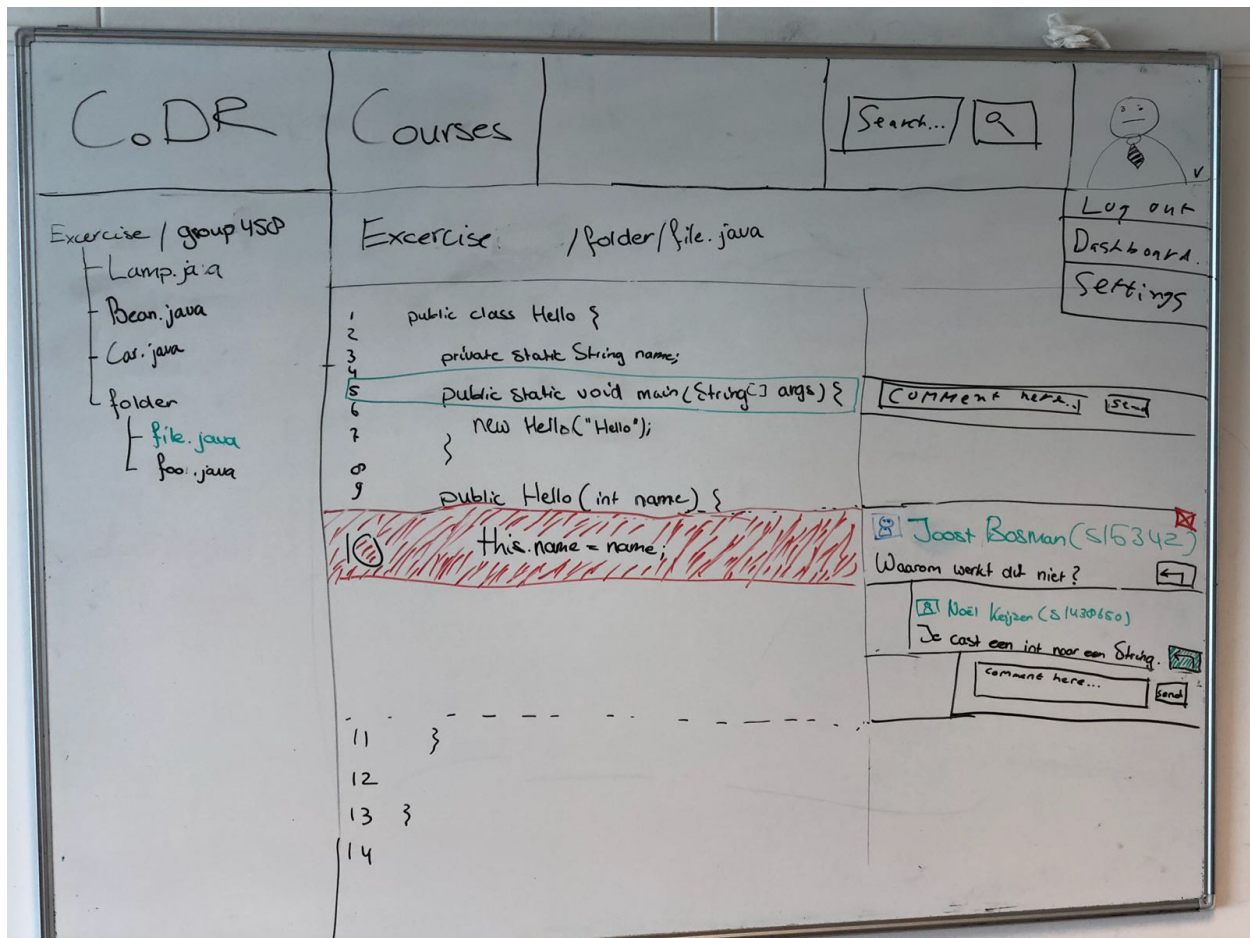 CoDR
Courses
Search...
Log out
Dashboard.
Settings
Excercise / group 458
Lamp.java
Bean.java
Car.java
folder
file.java
foo.java
Excercise /folder/file.java
1 public class Hello {
2
3 private static String name;
4
5 public static void main(String[] args) {
6
7 new Hello("Hello");
}
8
9 public Hello (int name) {
10 this.name = name;
11 }
12
13 }
14
Comment here... send
Joost Bosman (s15342)
Waarom werkt dit niet?
Noël Keijzer (s1430650)
Je cast een int naar een String.
comment here... send